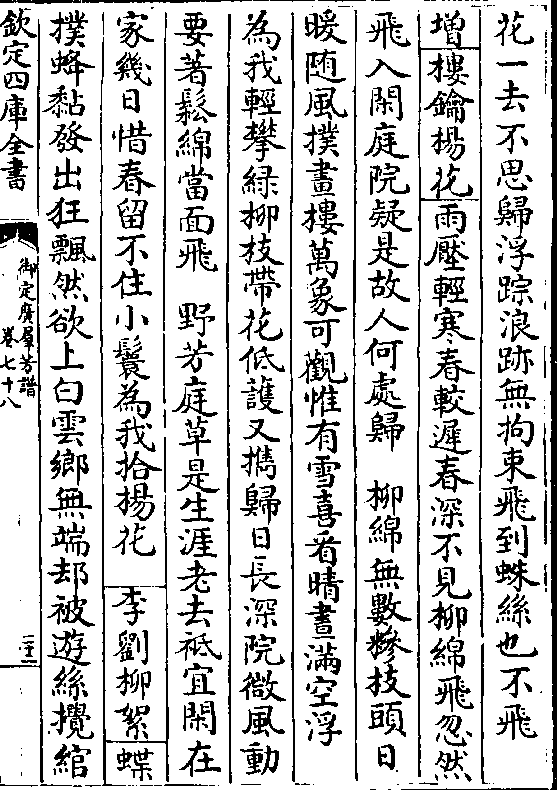 花一去不思歸浮踪浪跡無拘束飛到蛛絲也不飛
增樓鑰楊花雨壓輕寒春較遲春深不見柳綿飛忽然
飛入閑庭院疑是故人何處歸　柳綿無數糝技頭日
暖随風撲畫樓萬象可觀惟有雪喜看晴晝滿空浮
為我輕攀緑柳枝帶花低護又擕歸日長深院微風動
要著鬆綿當面飛　野芳庭草是生涯老去秪宜閑在
家幾日惜春留不住小鬟為我拾楊花　李劉柳絮蝶
撲蜂黏發出狂飄然欲上白雲鄉無端却被遊絲攪綰
欽定四庫全書
御定廣羣芳譜
卷七十八